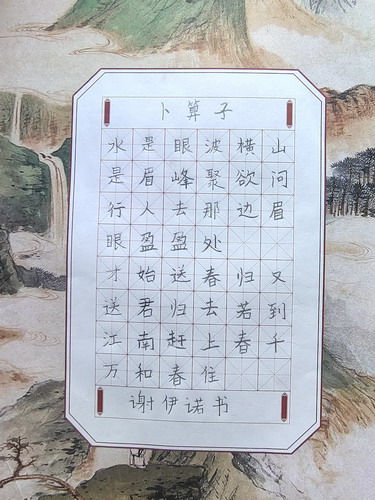 卜算子
水是眼波横山
是眉峰聚欲问
行人去那边眉
眼盈盈处
才始送春归又
送君归去若到
江南赶上春千
万和春住
谢伊诺书